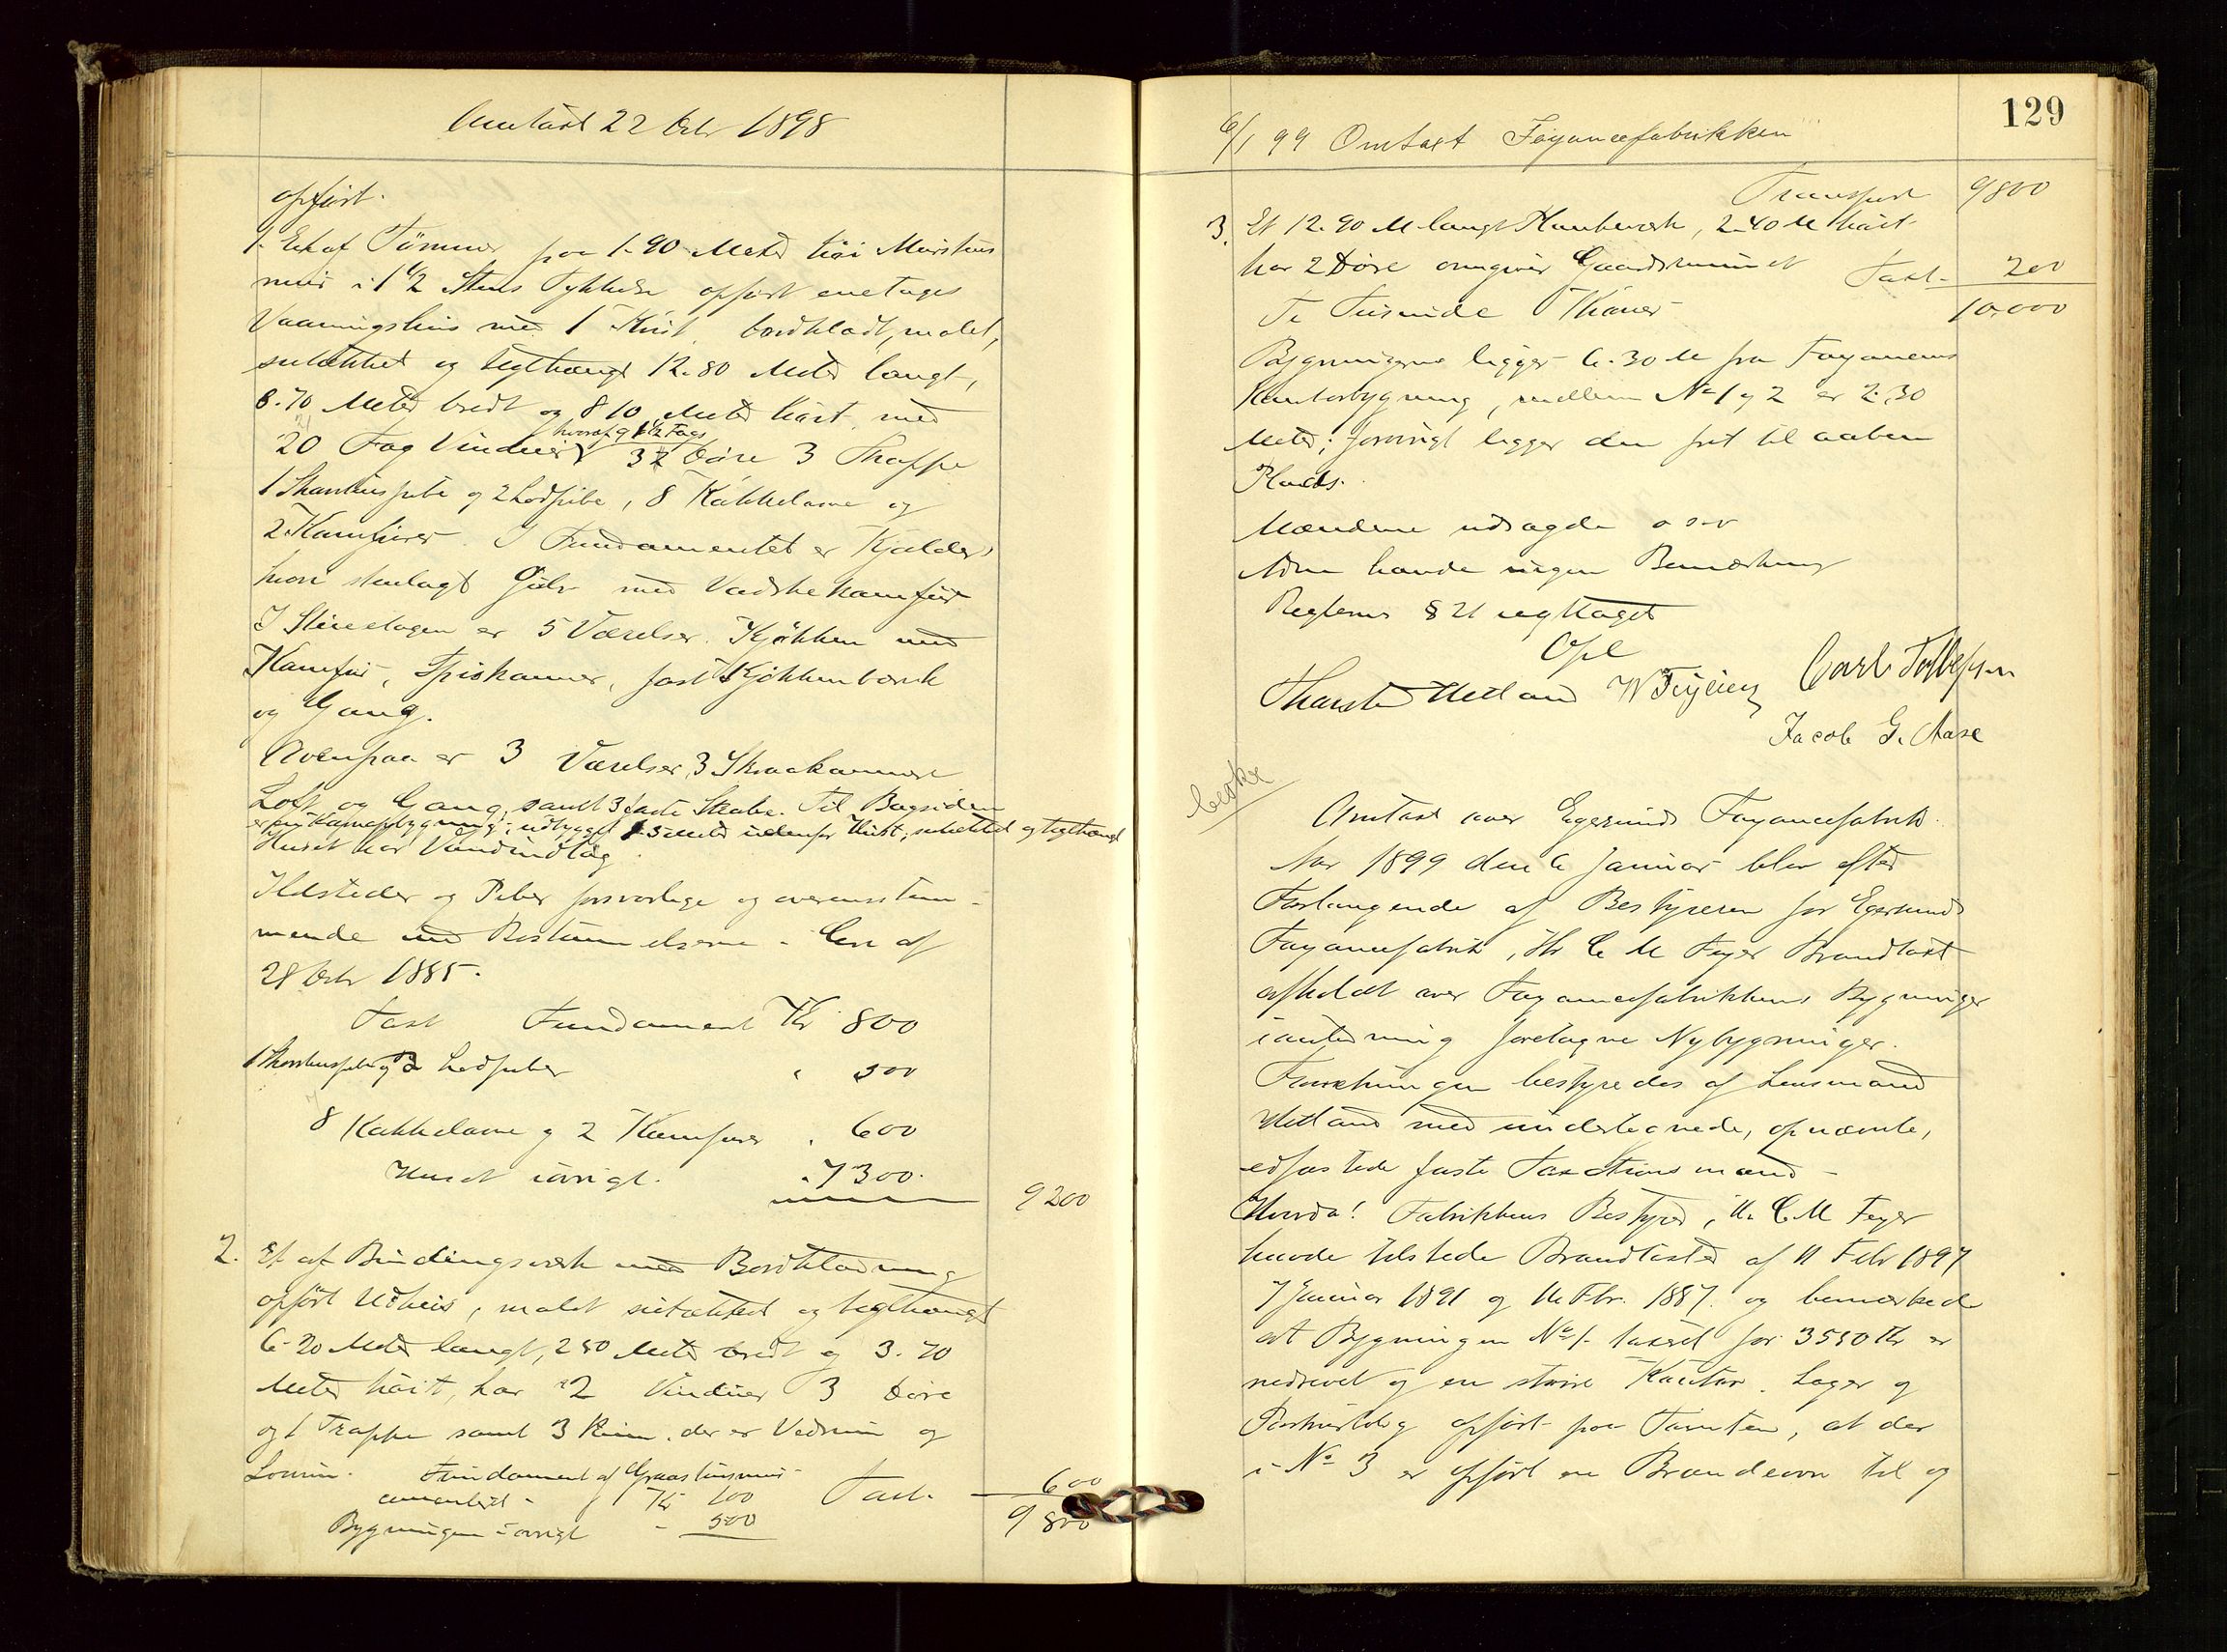 Omtaxt 22 Octr 1898
opført.
1. Et af Tømmer paa 1.90 Meter høi Murstens
mur i 1 1/2 Stens Tykkelse opført enetages
Vaaningshus med 1 Kvist, bordklædt, malet,
sutækket og teglhængt 12.80 Meter langt,
8.70 Meter bredt og 8 10 Meter høit, med
hvoraf 9 1/2 Fags
20 Fag Vinduer 32 Døre 3 Trappe
1 Skorstenspibe og 2 Lodpibe, 8 Kakkelovne og
2 Kamfurer. I Fundamentet er Kjælder,
hvori stenlagt Gulv med Vadskekamfur
I Stueetagen er 5 Værelser. Kjøkken med
Kamfur, Spiskammer, fast Kjøkkenbænk
og Gang.
Ovenpaa er 3 Værelser, 3 Skraakammere
Loft og Gang, samt 3 faste Skabe. Til Bagsiden
er en udbygget 1.5 Meter udenfor Huset, sutækket og teglhængt
Huset har Vandindlæg
Ildsteder og Piber forsvarlige og overensstem-
mende med Bestemmelserne i Cirk af
28 Octr 1885.
Taxt Fundament Kr 800
1 Skorstenspibe og 2 Lodpiber " 500
8 Kakkelovne og 2 Kamfurer " 600
Huset iøvrigt. " 7300. 9200
2. Et af Bindingsværk med Bordklædning
opført Udhus, malet sutækket og teglhængt
6.20 Meter langt, 2 80 Meter bredt og 3.70
Meter høit, har 2 Vinduer 3 Døre
og 1 Trappe samt 3 Rum, der er Vedrum og
Lorum. Fundament af Graastensmur
cementeret - Kr 100 Taxt. 600
Bygningen iøvrigt - 500 9 800
129
6/1 99 Omtaxt Fayancefabrikken
Transport 9800
3. Et 12.90 M langt Plankeværk, 2.40 M høit
har 2 Døre omgiver Gaardsrummet Taxt 200
Ti Tusinde Kroner 10,000
Bygningerne ligger 6.30 M fra Fayancens
Kontorbygning, mellem No 1 og 2 er 2.30
Meter; forøvrigt ligger den frit til aaben
Plads.
Mændene udsagde osv
Ednr havde ingen Bemærkning
Reglems § 21 iagttaget
Opl
Thorstn Hetland W Feyling Carl Tollefsen
Jacob G. Aase
Omtaxt over Egersunds Fayancefabrik.
Aar 1899 den 6 Januar blev efter
Forlangende af Bestyreren for Egersunds
Fayancefabrik, Hr C M Feyer Brandtaxt
afholdt over Fayancefabrikkens Bygninger
i anledning foretagne Nybygninger.
Forretningen bestyredes af Lensmand
Hetland med undertegnede, opnævnte,
edfæstede faste Taxtionsmænd -
Hvorda! Fabrikkens Bestyrer, Hr. C M Feyer
havde tilstede Brandtaxter af 11 Febr 1897
7 Januar 1891 og 16 Fbr. 1887. og bemærkede
at Bygningen No 1. taxeret for 3550 Kr er
nedrevet og en større Kontor, Lager og
opført paa Tomten, at der
i No 3 er opført en Brændeovn til og